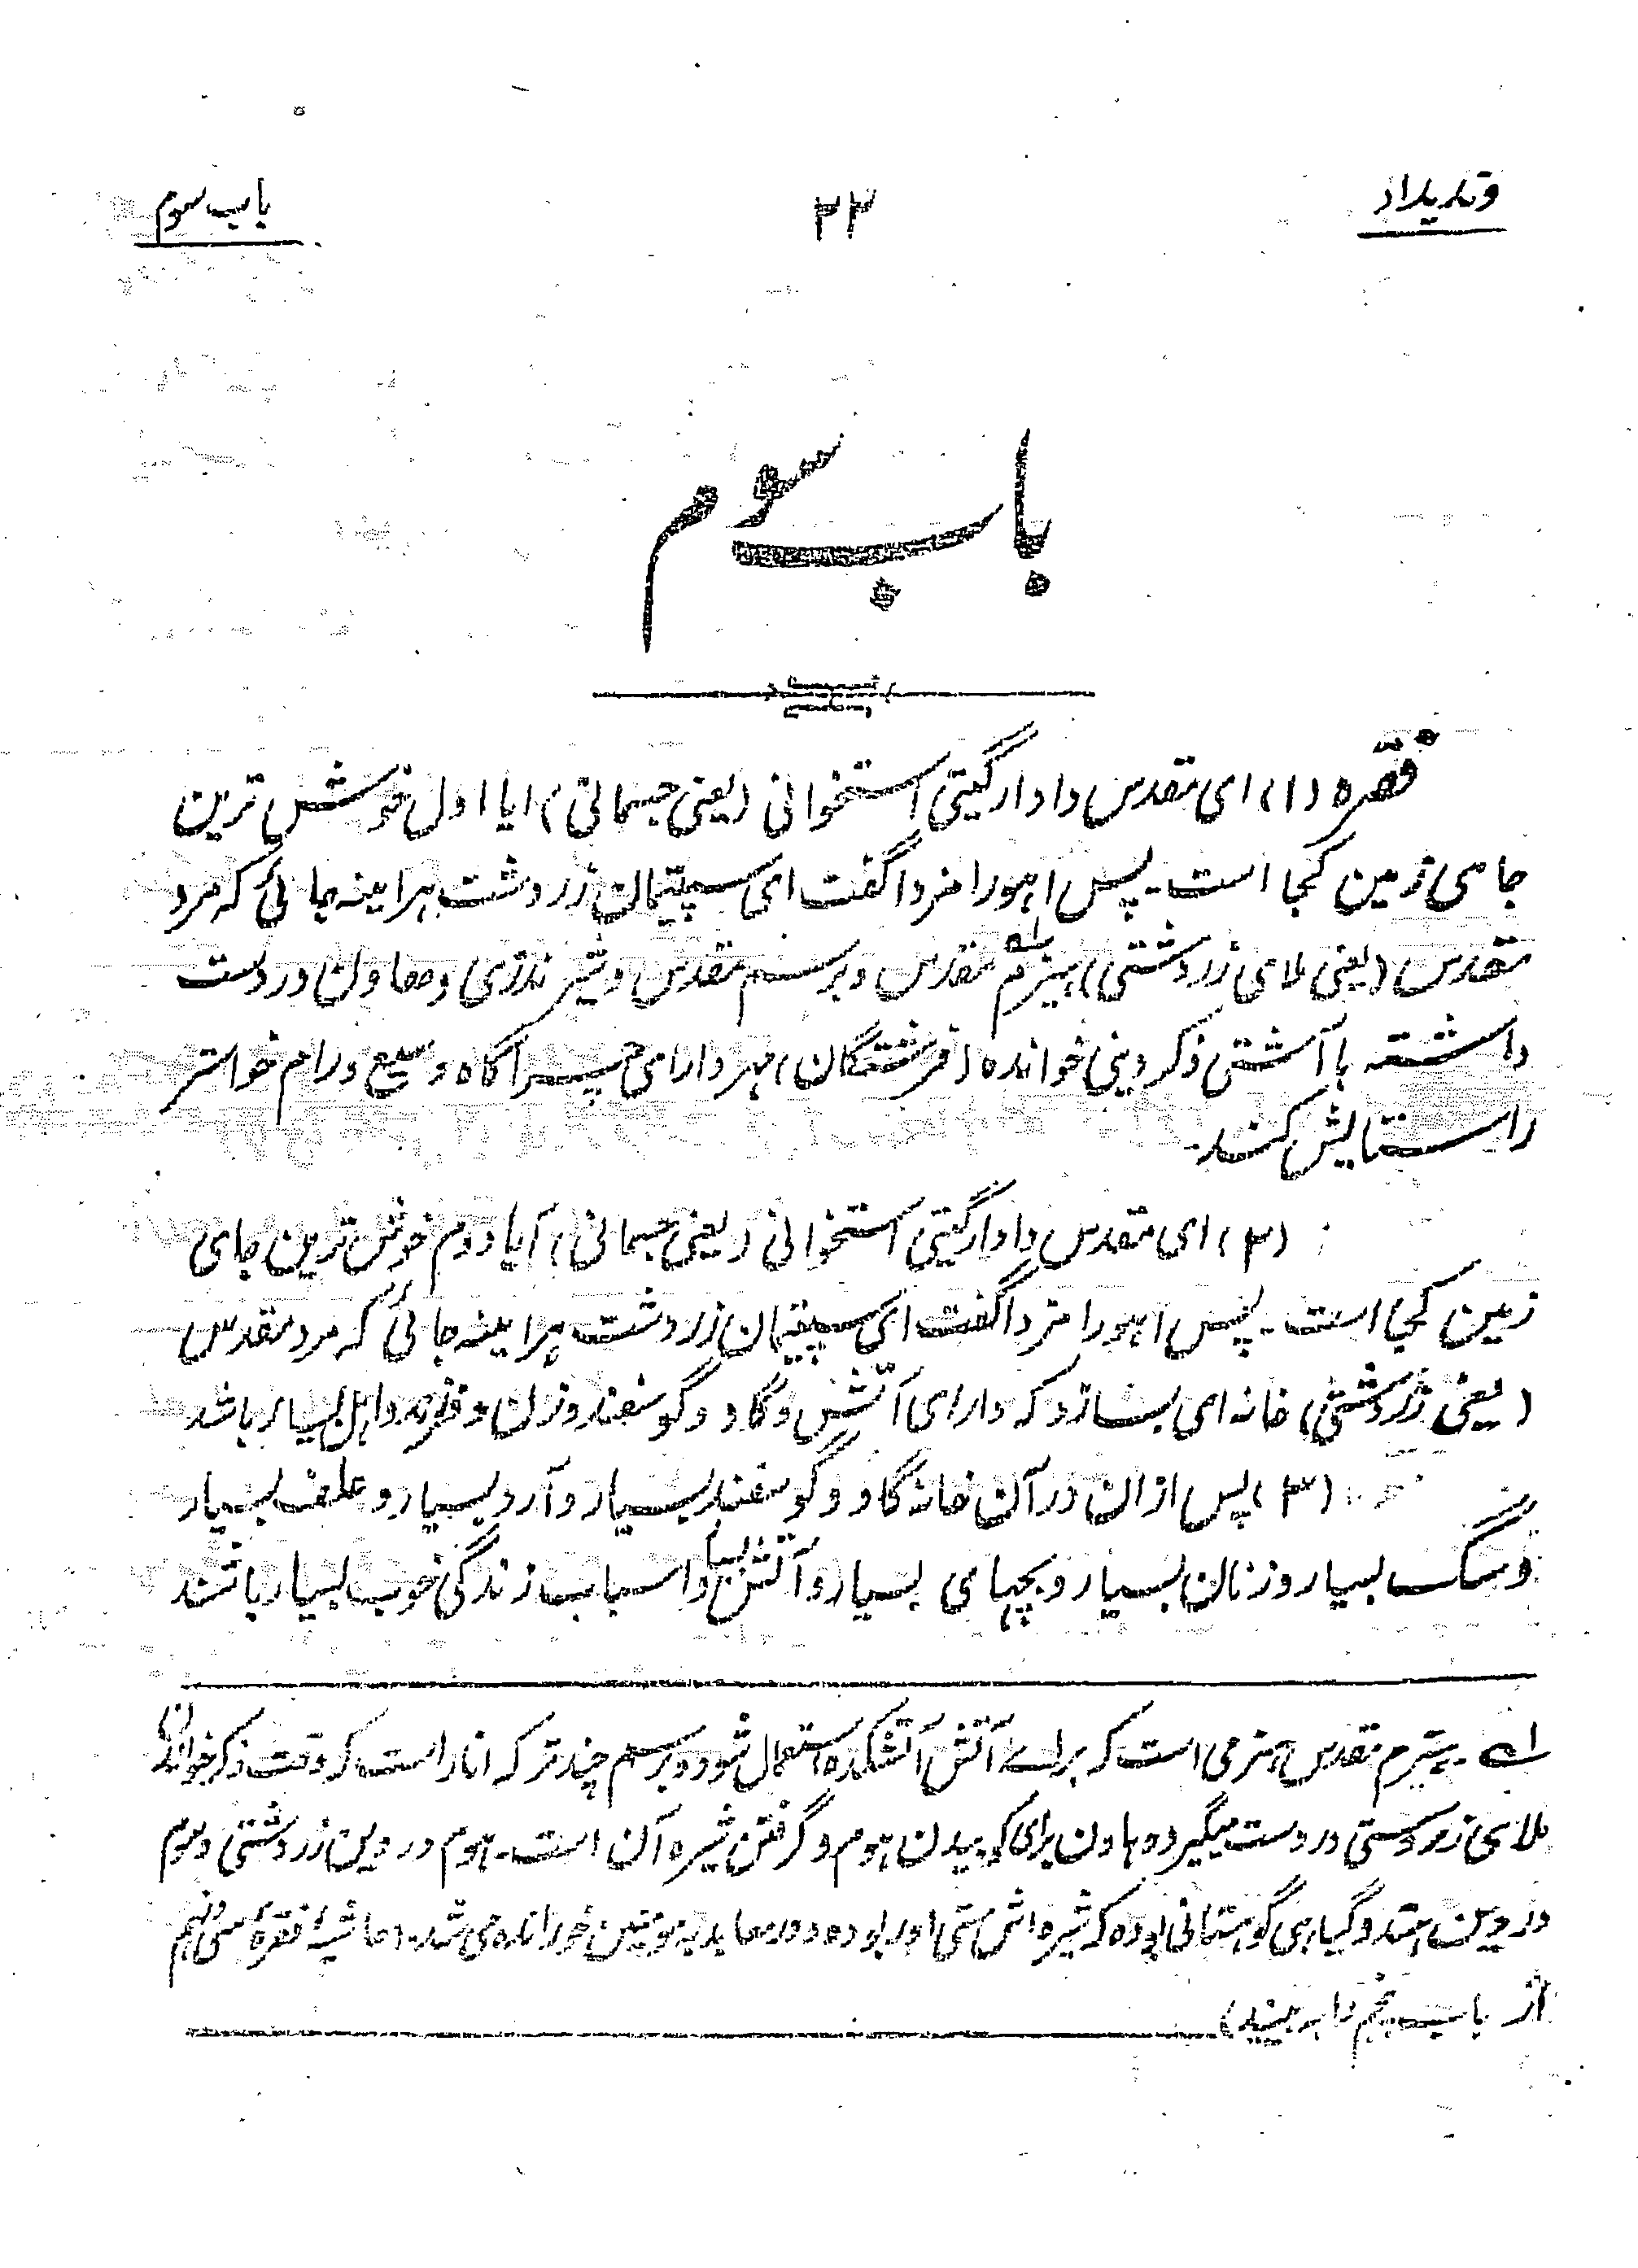 وندیداد
۲۲
باب سوم
باب سوم
فقره (۱) ای مقدس دادار گیتی استخوانی (یعنی جسمانی) ایا اول خوش ترین
جای زمین کجا است۔ پس اهورا مزدا گفت ای سپیتمان زردشت هراینه جائی که مرد
مقدس (یعنی ملای زردشتی) هیزم مقدس و برسم مقدس و شیر نذری و هاون در دست
داشته با آشتی ذکر دینی خوانده (فرشتگان) مهر دارای چراگاه وسیع و رام خواستر
را ستایش کند۔
(۲) ای مقدس دادار گیتی استخوانی (یعنی جسمانی) آیا دوم خوش ترین جای
زمین کجا است۔ پس اهورا مزدا گفت ای سپیتمان زردشت هراینه جائی که مرد مقدس
(یعنی زردشتی) خانه ای بسازد که دارای آتش و گاو و گوسفند و زن و فرزند و اهل بسیار باشد
(۳) پس از ان در آن خانه گاو و گوسفند بسیار و آرد بسیار و علف بسیار
و سگ بسیار و زنان بسیار و بچهای بسیار و آتش بسیار و اسباب زندگی خوب بسیار باشند
له۔ هیزم مقدس هیزمی است که برای آتش آتشکده استعمال شود و برسم چند ترکه انار است که وقت ذکر خوانی
ملای زردستی در دست میگیرد و هاون برای کوبیدن هوم و گرفتن شیره آن است۔ هوم در دین زردشتی و سوم
در دین هندو گیاهی کوهستانی بوده که شیره اش مستی اور بوده و در معابد به مومنین خورانده می شد۔ (حاشیهٔ فقرهٔ سی و نهم
از باب پنجم را به بینید)